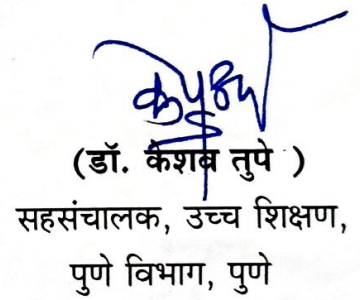 (डॉ. केशव तुपे )
सहसंचालक, उच्च शिक्षण,
पुणे विभाग, पुणे